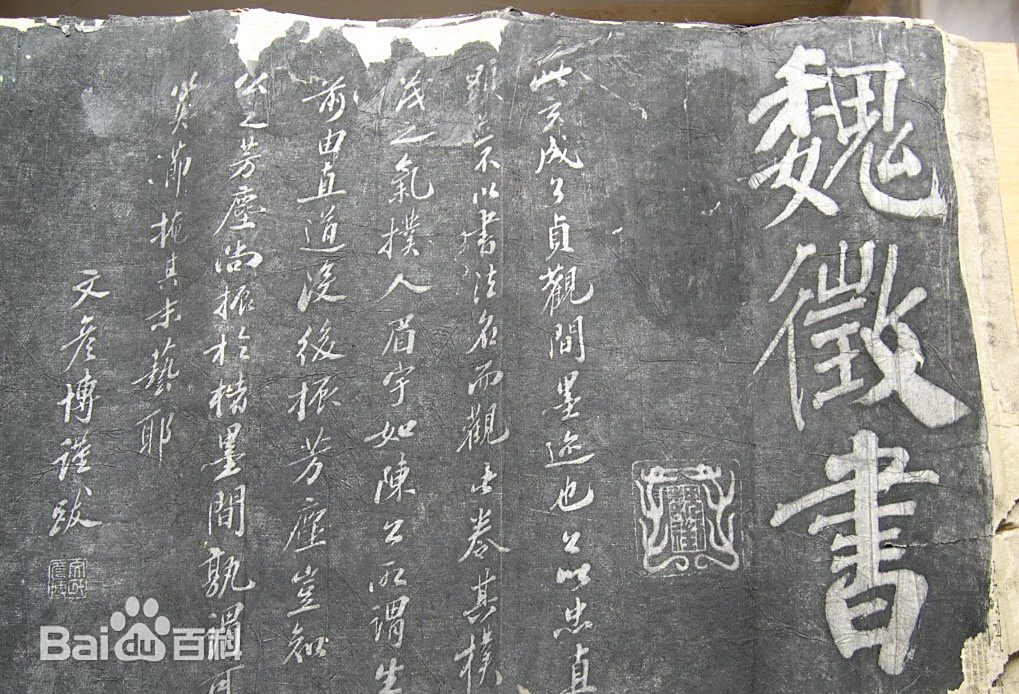 魏徵書
此玄成公貞觀間墨迹也公以忠直
顯不以書法名而觀此卷其樸
茂之氣撲人眉宇如陳公所謂生
前由直道沒後振芳塵豈知
公之芳塵尚振於楮墨間孰謂可
節掩其末藝耶
文彥博謹跋
Bai 百科